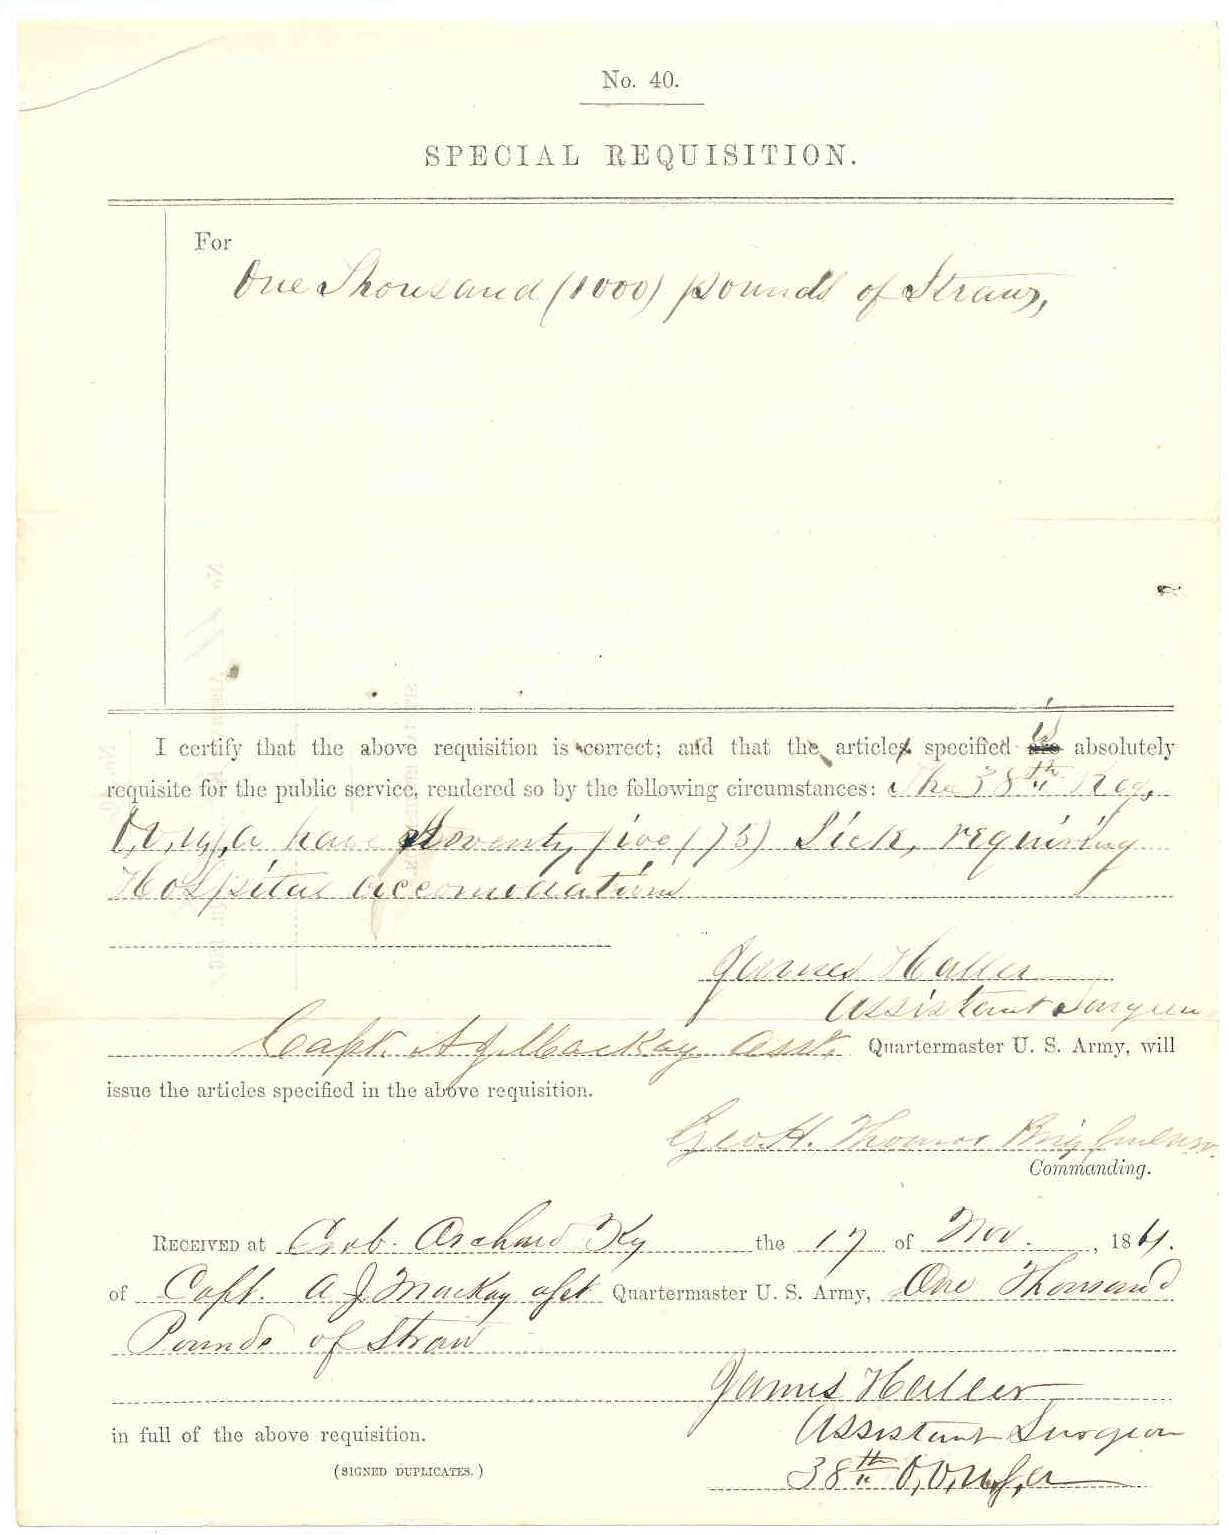 No. 40.
SPECIAL REQUISITION.
For
One Thousand (1000) pounds of Straw,
I certify that the above requisition is correct; and that the article specified is absolutely
requisite for the public service, rendered so by the following circumstances: The 38th Reg,
O,V,U,S,A have Seventy five (75) Sick, requiring
Hospital accomodations
James Haller
Assistant Surgeon
Capt. A J Mackay Asst. Quartermaster U. S. Army, will
issue the articles specified in the above requisition.
Geo. H. Thomas Brig Genl
Commanding.
RECEIVED at Crab Orchard Ky the 17 of Nov. , 1861.
of Capt. A J Mackay asst Quartermaster U. S. Army, One Thousand
Pounds of Straw
James Haller
in full of the above requisition.
Assistant Surgeon
(SIGNED DUPLICATES.)
38th O,V,U,S,A